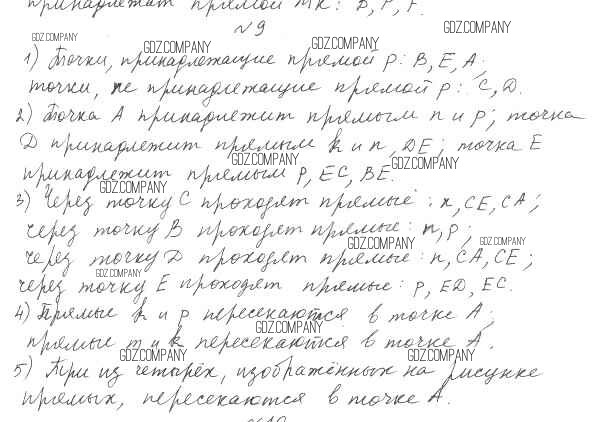 принадлежат прямой mk: B, P, F.
№9
1) Точки, принадлежащие прямой p: B, E, A;
точки, не принадлежащие прямой p: C, D.
2) Точка A принадлежит прямым n и p; точка
D принадлежит прямым k и n, DE; точка E
принадлежит прямым p, EC, BE.
3) Через точку C проходят прямые: n, CE, CA;
через точку B проходят прямые: n, p;
через точку D проходят прямые: n, CA, CE;
через точку E проходят прямые: p, ED, EC.
4) Прямые k и p пересекаются в точке A;
прямые m и k пересекаются в точке A.
5) Три из четырёх, изображённых на рисунке
прямых, пересекаются в точке A.
GDZ.COMPANY
GDZ.COMPANY
GDZ.COMPANY
GDZ.COMPANY
GDZ.COMPANY
GDZ.COMPANY
GDZ.COMPANY
GDZ.COMPANY
GDZ.COMPANY
GDZ.COMPANY
GDZ.COMPANY
GDZ.COMPANY
GDZ.COMPANY